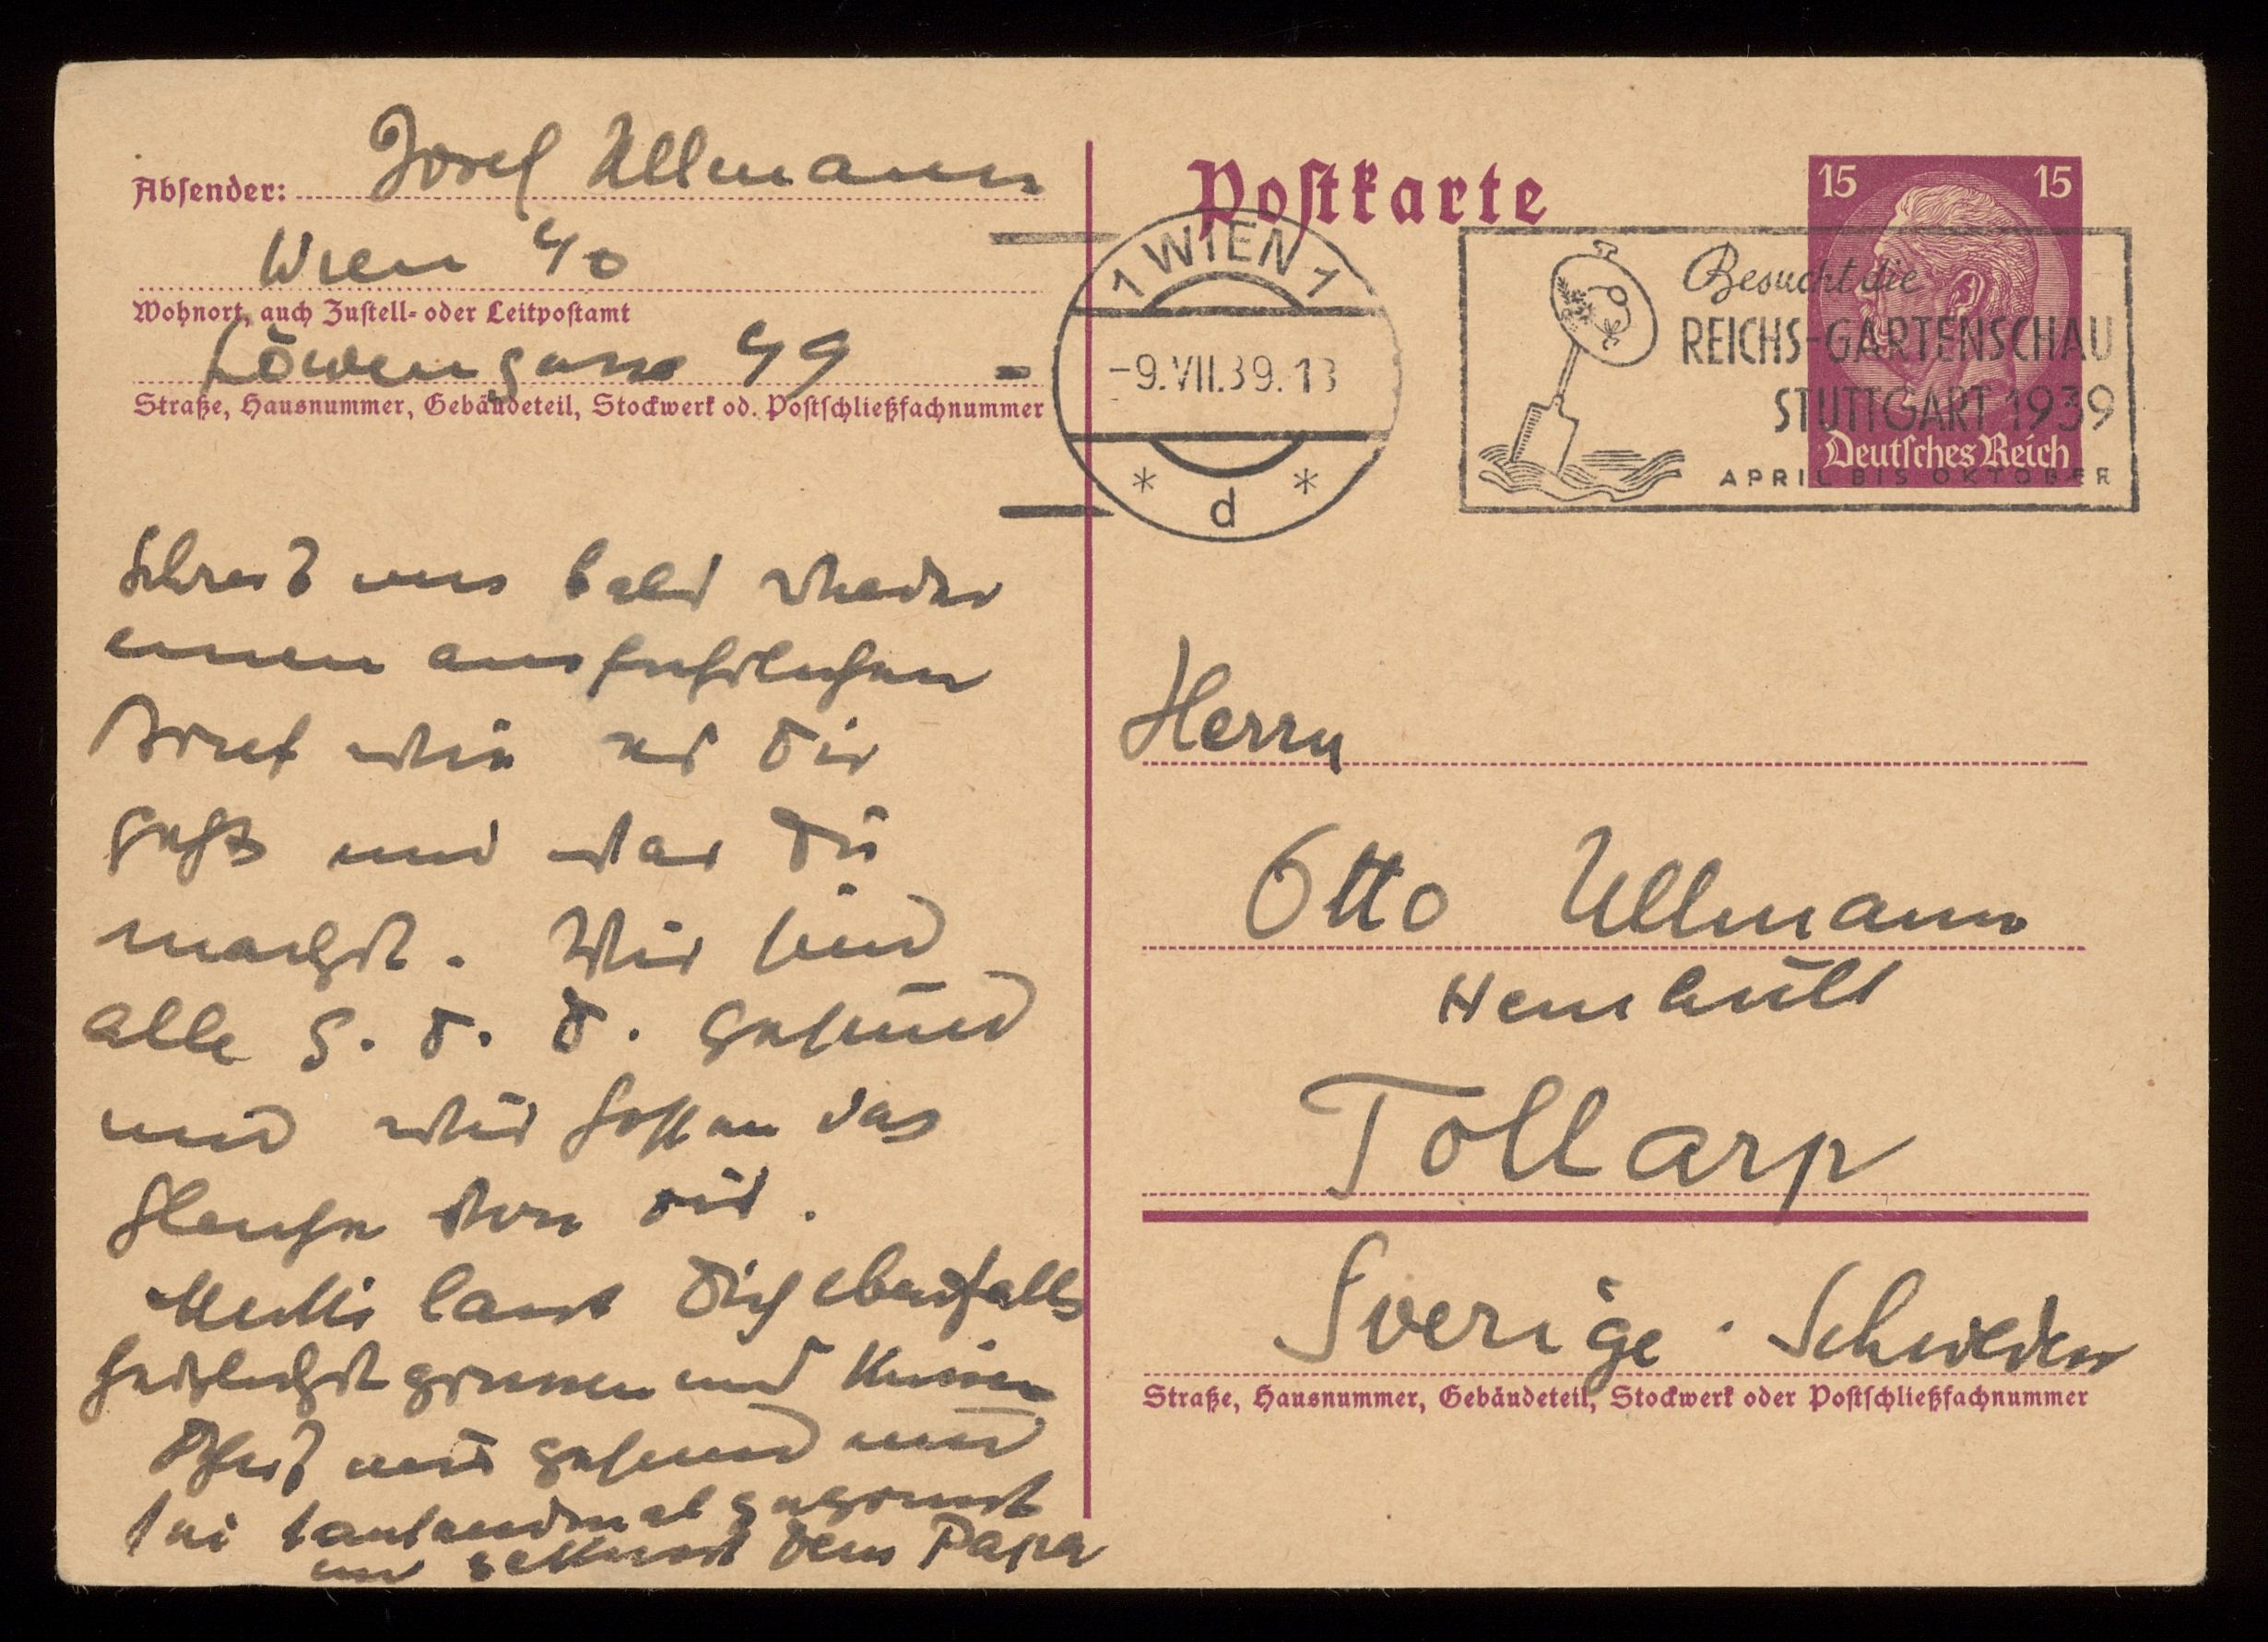 Absender: Josef Ullmann
Wien 40
Wohnort, auch Zustell- oder Leitpostamt
Löwengasse 49
Straße, Hausnummer, Gebäudeteil, Stockwerk od. Postschließfachnummer
Postkarte
15 15
Deutsches Reich
1 WIEN 1
-9.VII.39.13
* d *
Besucht die
REICHS-GARTENSCHAU
STUTTGART 1939
APRIL BIS OKTOBER
Schreib uns bald wieder
einen ausfuhrlichen
Brief wie es Dir
geht und was Du
machst. Wir sind
alle G. s. D. gesund
und wir hoffen das
Gleiche von Dir.
Mutti lasst Dich ebenfalls
herzlichst grussen und Kussen
Bleib nur gesund und
sei tausendmal gegrusst
und gekusst Dein Papa
Herrn
Otto Ullmann
Tollarp
Sverige · Schweden
Straße, Hausnummer, Gebäudeteil, Stockwerk oder Postschließfachnummer